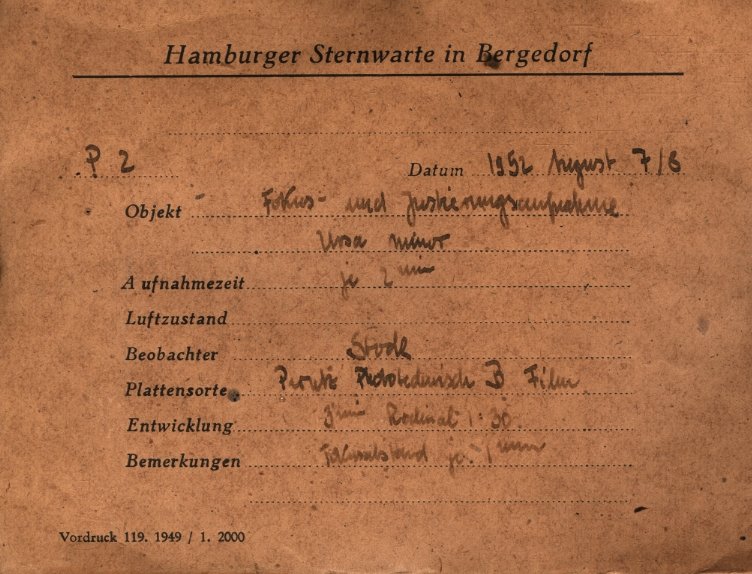 Hamburger Sternwarte in Bergedorf
P 2 Datum 1952 August 7/8
Objekt Fokus- und Justierungsaufnahme
Ursa minor
Aufnahmezeit je 2 min
Luftzustand
Beobachter
Plattensorte Perutz Phototechnisch B Film
Entwicklung 3 min Rodinal 1:30
Bemerkungen Fokusabstand je 1 mm
Vordruck 119. 1949 / 1. 2000